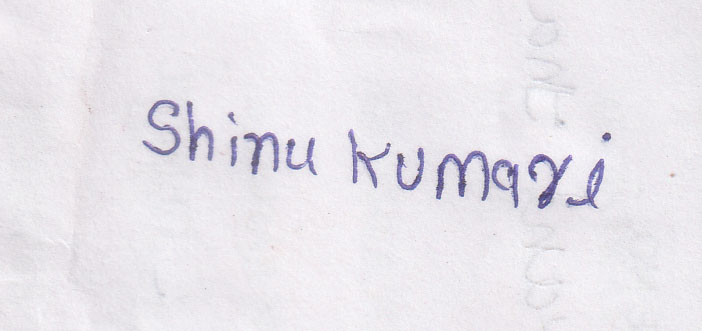 Shinu Kumari